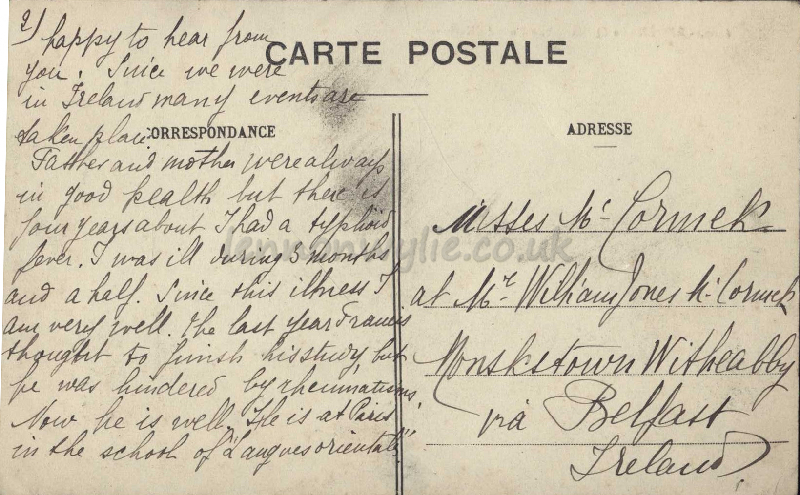 2/ happy to hear from
you. Since we were
in Ireland many events are
taken place
CARTE POSTALE
CORRESPONDANCE
Father and mother were always
in good health but there is
four years about I had a typhoid
fever. I was ill during 3 months
and a half. Since this illness I
am very well. The last year Francis
thought to finish his study but
he was hindered by rheumatisms.
Now he is well. He is at Paris
in the school of "Langues orientales".
ADRESSE
Misses Mc Cormick
at Mr William Jones Mc Cormick
Monkstown Witheabby
via Belfast
Ireland
lennonwylie.co.uk